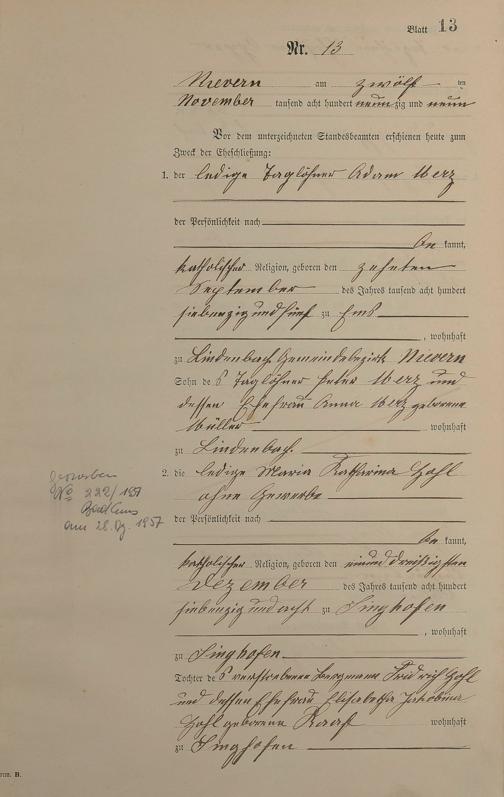 Blatt 13
Nr. 13
Nievern am zwölften
November tausend acht hundert neunzig und neun
Vor dem unterzeichneten Standesbeamten erschienen heute zum
Zweck der Eheschließung:
1. der ledige Taglöhner Adam Merz
der Persönlichkeit nach
be kannt,
katholischer Religion, geboren den zehnten
September des Jahres tausend acht hundert
siebenzig und fünf zu Ems
, wohnhaft
zu Lindenbach Gemeindebezirk Nievern
Sohn des Taglöhner Peter Merz und
dessen Ehefrau Anna Merz geborene
Müller wohnhaft
zu Lindenbach.
2. die ledige Maria Katharina Hohl
ohne Gewerbe
der Persönlichkeit nach
be kannt,
katholischer Religion, geboren den einunddreißigsten
Dezember des Jahres tausend acht hundert
siebenzig und acht zu Singhofen
, wohnhaft
zu Singhofen
Tochter des verstorbenen Bergmann Fridrich Hohl
und dessen Ehefrau Elisabetha Jakobina
Hohl geborene Raaf wohnhaft
zu Singhofen
gestorben
No 222/1957
Bad Ems
am 28. 1957